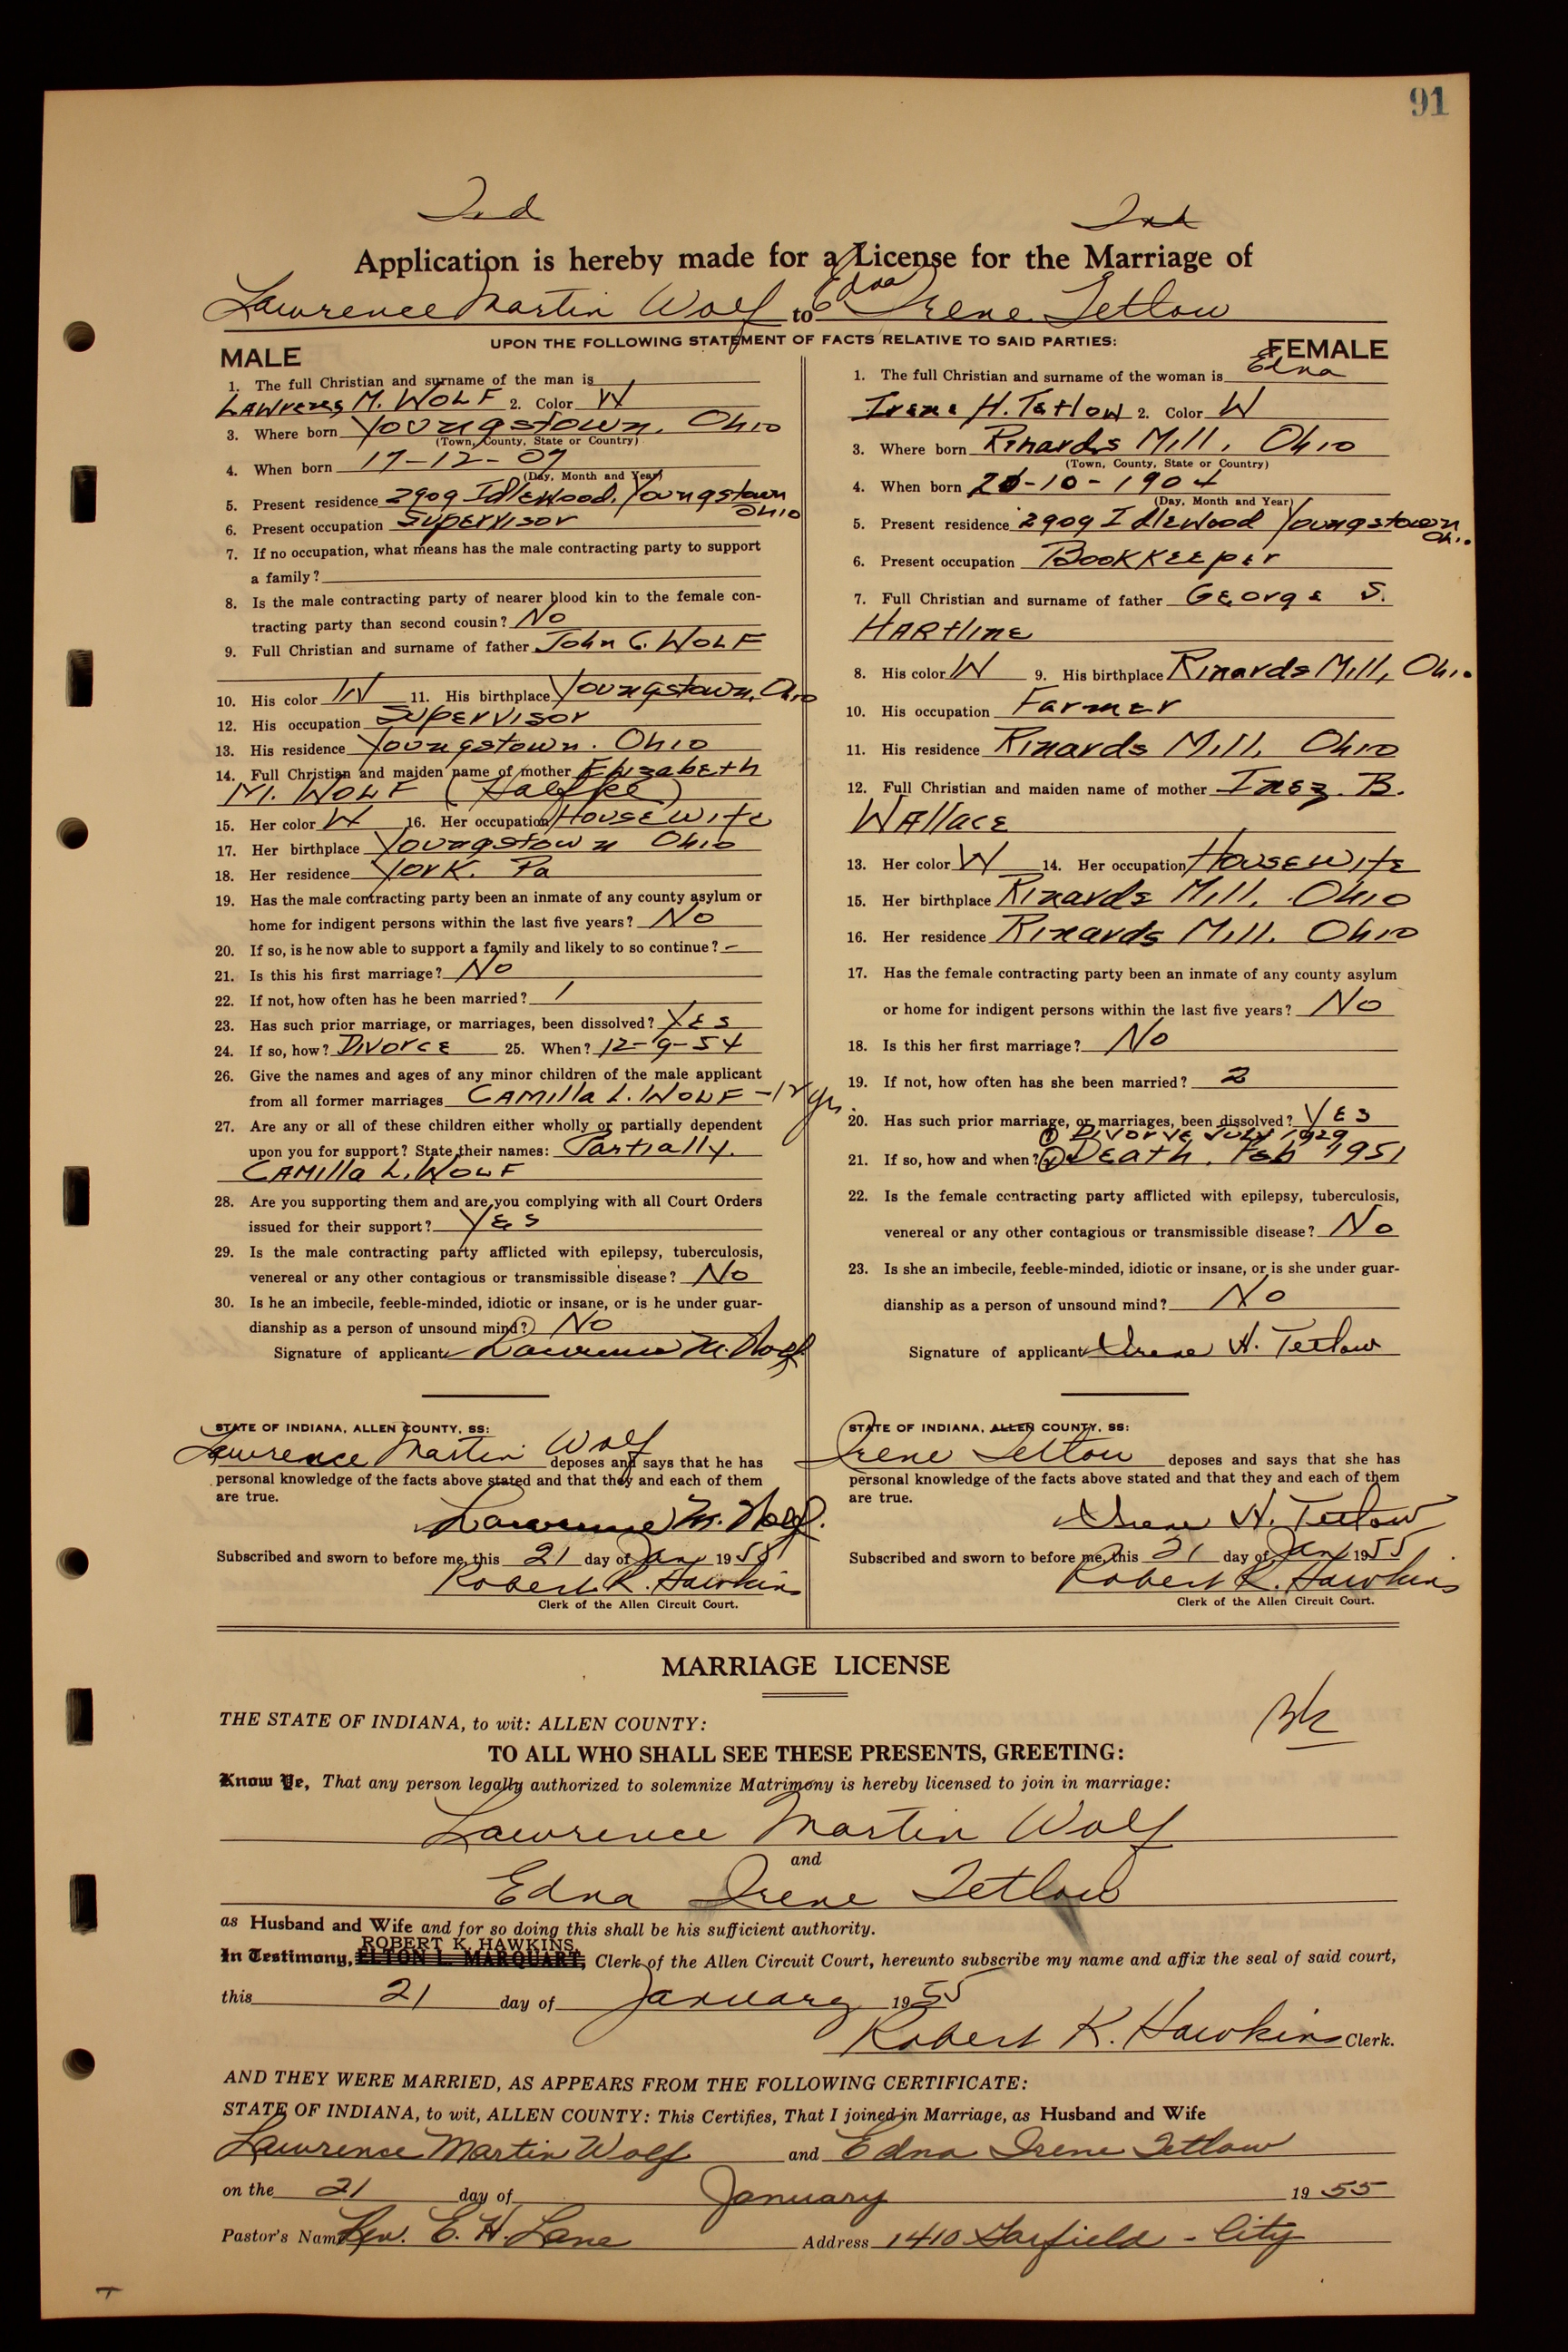 91
Ind
Ind
Application is hereby made for a License for the Marriage of
Lawrence Martin Wolf to Edna Irene Tetlow
UPON THE FOLLOWING STATEMENT OF FACTS RELATIVE TO SAID PARTIES:
MALE
1. The full Christian and surname of the man is
Lawrence M. Wolf 2. Color W
3. Where born Youngstown, Ohio
(Town, County, State or Country)
4. When born 17-12-07
(Day, Month and Year)
5. Present residence 2909 Idlewood, Youngstown
Ohio
6. Present occupation Supervisor
7. If no occupation, what means has the male contracting party to support
a family?
8. Is the male contracting party of nearer blood kin to the female con-
tracting party than second cousin? No
9. Full Christian and surname of father John C. Wolf
10. His color W 11. His birthplace Youngstown, Ohio
12. His occupation Supervisor
13. His residence Youngstown, Ohio
14. Full Christian and maiden name of mother Elizabeth
M. Wolf
15. Her color W 16. Her occupation Housewife
17. Her birthplace Youngstown Ohio
18. Her residence York, Pa
19. Has the male contracting party been an inmate of any county asylum or
home for indigent persons within the last five years? No
20. If so, is he now able to support a family and likely to so continue? -
21. Is this his first marriage? No
22. If not, how often has he been married? 1
23. Has such prior marriage, or marriages, been dissolved? Yes
24. If so, how? Divorce 25. When? 12-9-54
26. Give the names and ages of any minor children of the male applicant
from all former marriages Camilla L. Wolf - 12 yrs.
27. Are any or all of these children either wholly or partially dependent
upon you for support? State their names: Partially.
Camilla L. Wolf
28. Are you supporting them and are you complying with all Court Orders
issued for their support? Yes
29. Is the male contracting party afflicted with epilepsy, tuberculosis,
venereal or any other contagious or transmissible disease? No
30. Is he an imbecile, feeble-minded, idiotic or insane, or is he under guar-
dianship as a person of unsound mind? No
Signature of applicant Lawrence M. Wolf
STATE OF INDIANA, ALLEN COUNTY, SS:
Lawrence Martin Wolf deposes and says that he has
personal knowledge of the facts above stated and that they and each of them
are true.
Lawrence M. Wolf.
Subscribed and sworn to before me, this 21 day of Jan 1955
Robert K. Hawkins
Clerk of the Allen Circuit Court.
FEMALE
1. The full Christian and surname of the woman is Edna
Irene H. Tetlow 2. Color W
3. Where born Rinards Mill, Ohio
(Town, County, State or Country)
4. When born 20-10-1904
(Day, Month and Year)
5. Present residence 2909 Idlewood Youngstown
Oh.
6. Present occupation Bookkeeper
7. Full Christian and surname of father George S.
Hartline
8. His color W 9. His birthplace Rinards Mill, Ohio
10. His occupation Farmer
11. His residence Rinards Mill, Ohio
12. Full Christian and maiden name of mother Inez B.
Wallace
13. Her color W 14. Her occupation Housewife
15. Her birthplace Rinards Mill, Ohio
16. Her residence Rinards Mill, Ohio
17. Has the female contracting party been an inmate of any county asylum
or home for indigent persons within the last five years? No
18. Is this her first marriage? No
19. If not, how often has she been married? 2
20. Has such prior marriage, or marriages, been dissolved? Yes
(1) Divorce July 1929
21. If so, how and when? (2) Death, Feb 1951
22. Is the female contracting party afflicted with epilepsy, tuberculosis,
venereal or any other contagious or transmissible disease? No
23. Is she an imbecile, feeble-minded, idiotic or insane, or is she under guar-
dianship as a person of unsound mind? No
Signature of applicant Irene H. Tetlow
STATE OF INDIANA, ALLEN COUNTY, SS:
Irene Tetlow deposes and says that she has
personal knowledge of the facts above stated and that they and each of them
are true.
Irene H. Tetlow
Subscribed and sworn to before me, this 21 day of Jan 1955
Robert K. Hawkins
Clerk of the Allen Circuit Court.
MARRIAGE LICENSE
THE STATE OF INDIANA, to wit: ALLEN COUNTY:
TO ALL WHO SHALL SEE THESE PRESENTS, GREETING:
Know Ye, That any person legally authorized to solemnize Matrimony is hereby licensed to join in marriage:
Lawrence Martin Wolf
and
Edna Irene Tetlow
as Husband and Wife and for so doing this shall be his sufficient authority.
ROBERT K. HAWKINS
In Testimony, ELTON L. MARQUART, Clerk of the Allen Circuit Court, hereunto subscribe my name and affix the seal of said court,
this 21 day of January 1955
Robert K. Hawkins Clerk.
AND THEY WERE MARRIED, AS APPEARS FROM THE FOLLOWING CERTIFICATE:
STATE OF INDIANA, to wit, ALLEN COUNTY: This Certifies, That I joined in Marriage, as Husband and Wife
Lawrence Martin Wolf and Edna Irene Tetlow
on the 21 day of January 1955
Pastor's Name Rev. E. H. Lane Address 1410 Garfield - City